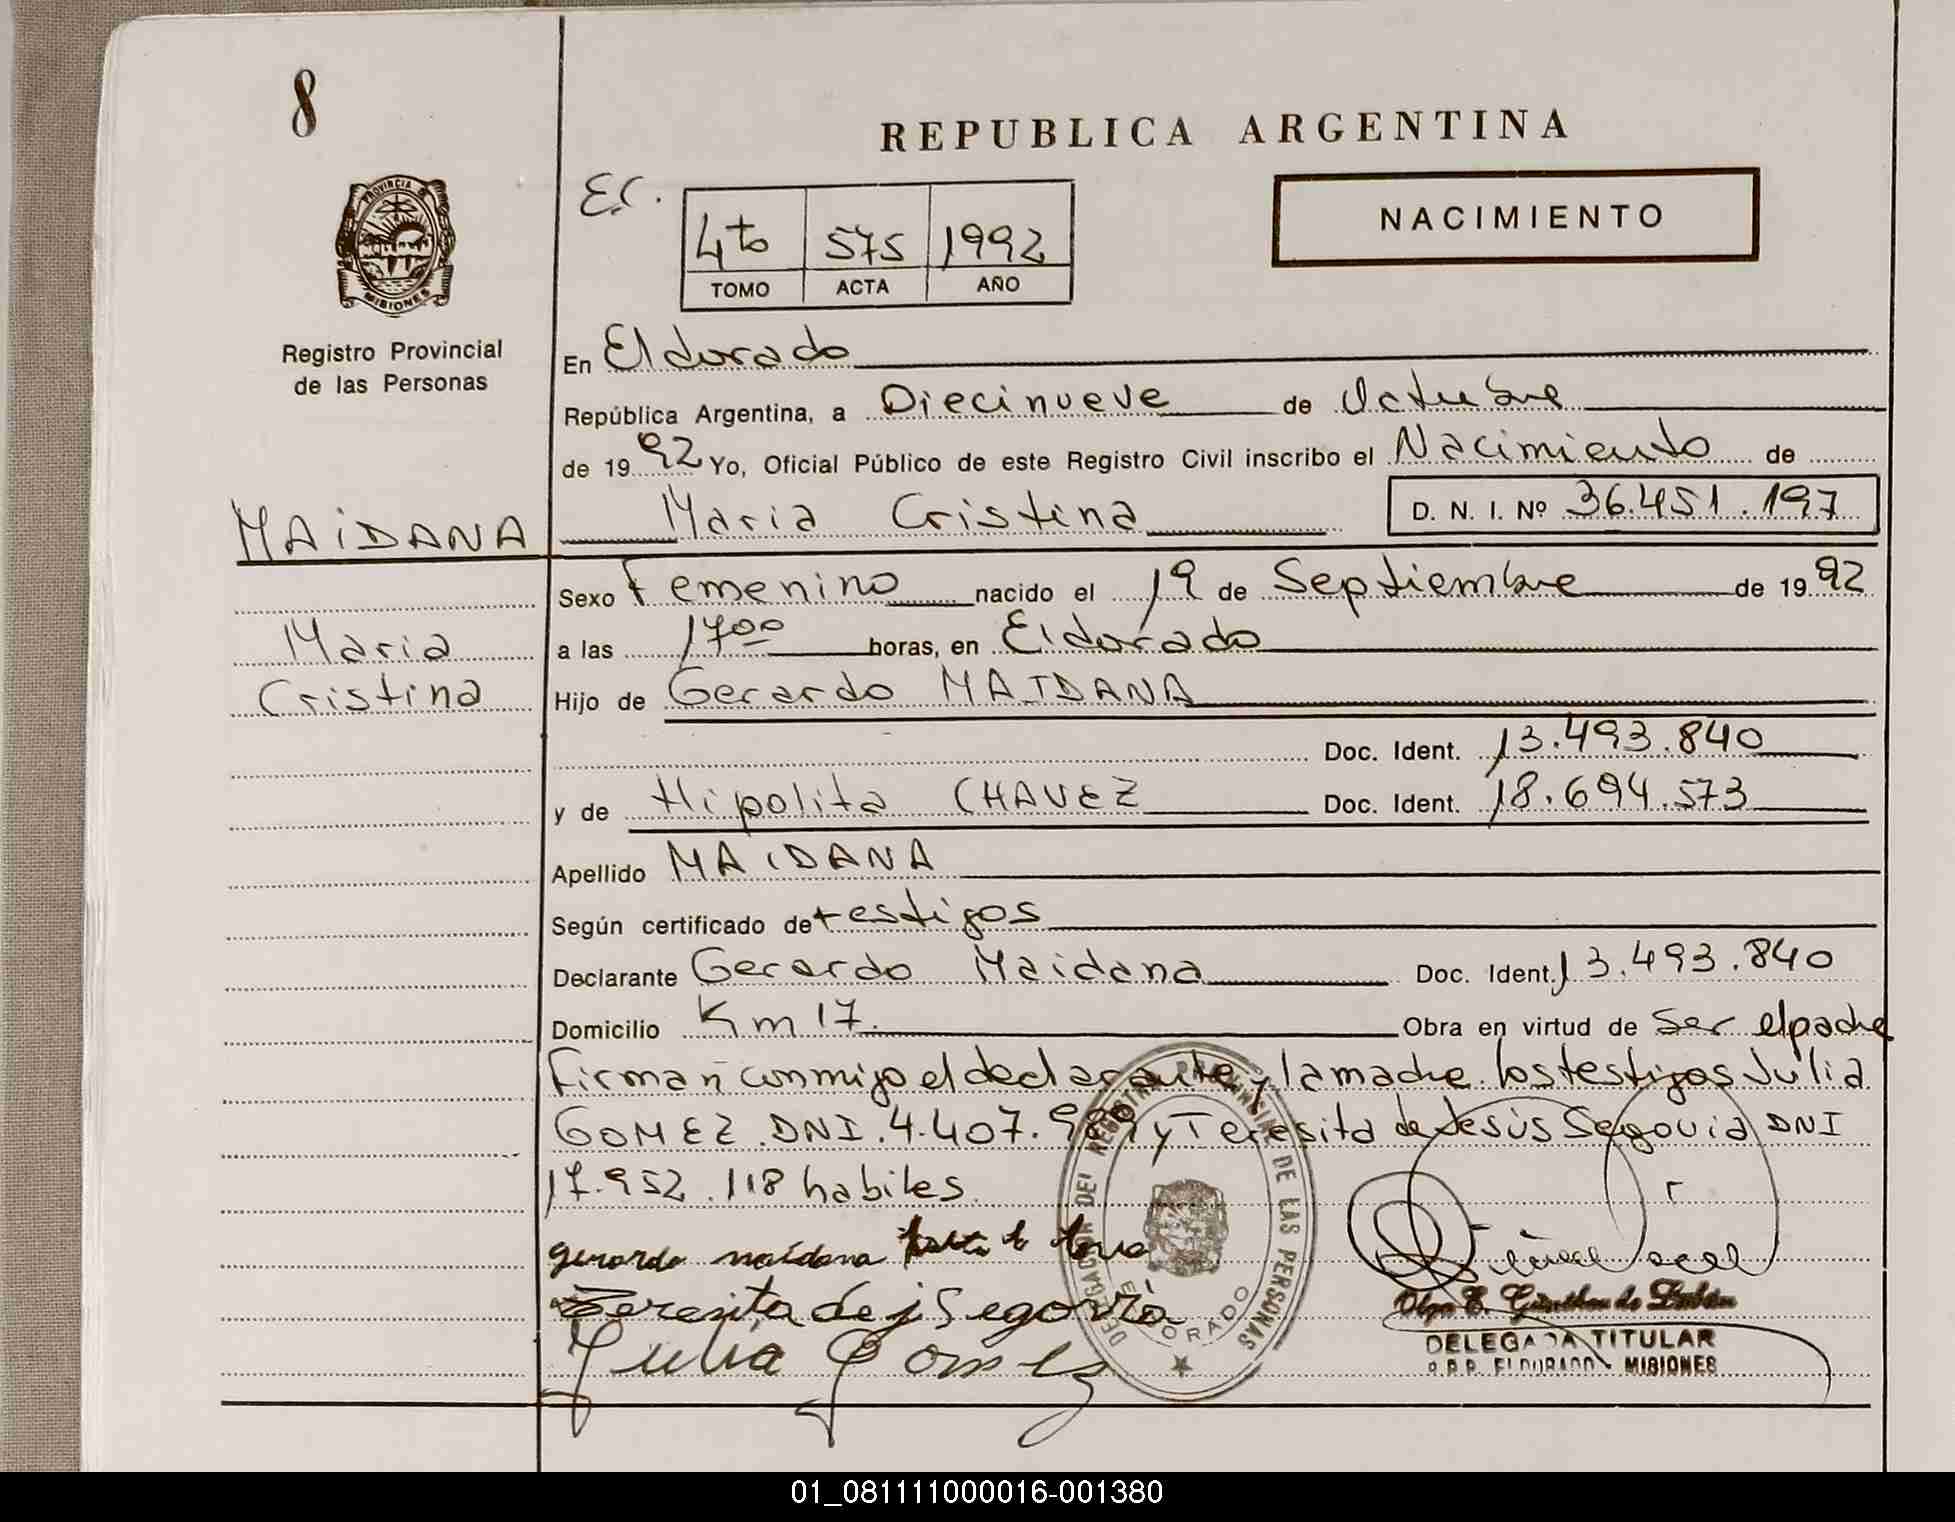 8
REPUBLICA ARGENTINA
PROVINCIA DE
MISIONES
Registro Provincial
de las Personas
4to 575 1992
TOMO ACTA AÑO
NACIMIENTO
En Eldorado
República Argentina, a Diecinueve de Octubre
de 1992 Yo, Oficial Público de este Registro Civil inscribo el Nacimiento de
MAIDANA Maria Cristina D. N. I. Nº 36.451.197
Sexo Femenino nacido el 19 de Septiembre de 1992
Maria a las 1700 horas, en Eldorado
Cristina Hijo de Gerardo MAIDANA
Doc. Ident. 13.493.840
y de Hipolita CHAVEZ Doc. Ident. 18.694.573
Apellido MAIDANA
Según certificado de testigos
Declarante Gerardo Maidana Doc. Ident. 13.493.840
Domicilio Km 17. Obra en virtud de ser el padre
Firman conmigo el declarante y la madre. los testigos Julia
GOMEZ DNI 4.407. y Teresita de Jesús Segovia DNI
17.952.118 habiles
gerardo maidana
Teresita de j Segovia
Julia Gomez
REGISTRO DE LAS PERSONAS
DELEGADA TITULAR
ELDORADO - MISIONES
01_081111000016-001380